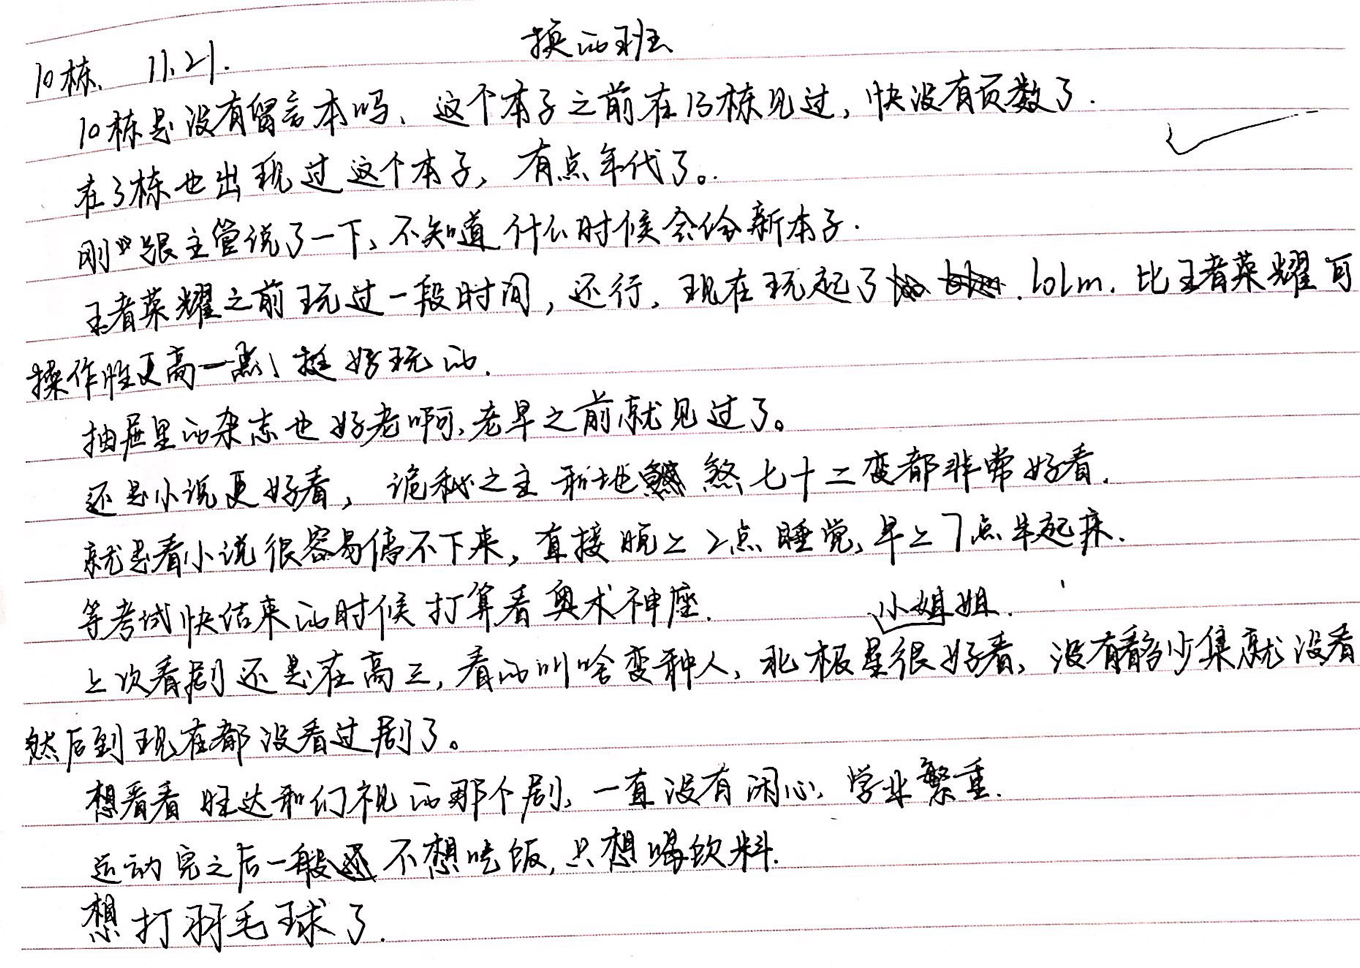 换的班
10栋. 11.21.
10栋是没有留言本吗、这个本子之前在13栋见过,快没有页数了.
在3栋也出现过这个本子,有点年代了。
刚刚跟主管说了一下、不知道什么时候会给新本子.
王者荣耀之前玩过一段时间,还行,现在玩起了 lolm. 比王者荣耀可
操作性更高一点、挺好玩的.
抽屉里的杂志也好老啊,老早之前就见过了。
还是小说更好看, 诡秘之主和地煞七十二变都非常好看.
就是看小说很容易停不下来,直接晚上2点睡觉,早上7点半起床.
等考试快结束的时候打算看奥术神座. 小姐姐.
上次看剧还是在高三,看的叫啥变种人,北极星很好看,没有看多少集就没看
然后到现在都没看过剧了。
想看看旺达和幻视的那个剧,一直没有闲心,学业繁重.
运动完之后一般不想吃饭,只想喝饮料.
想打羽毛球了.